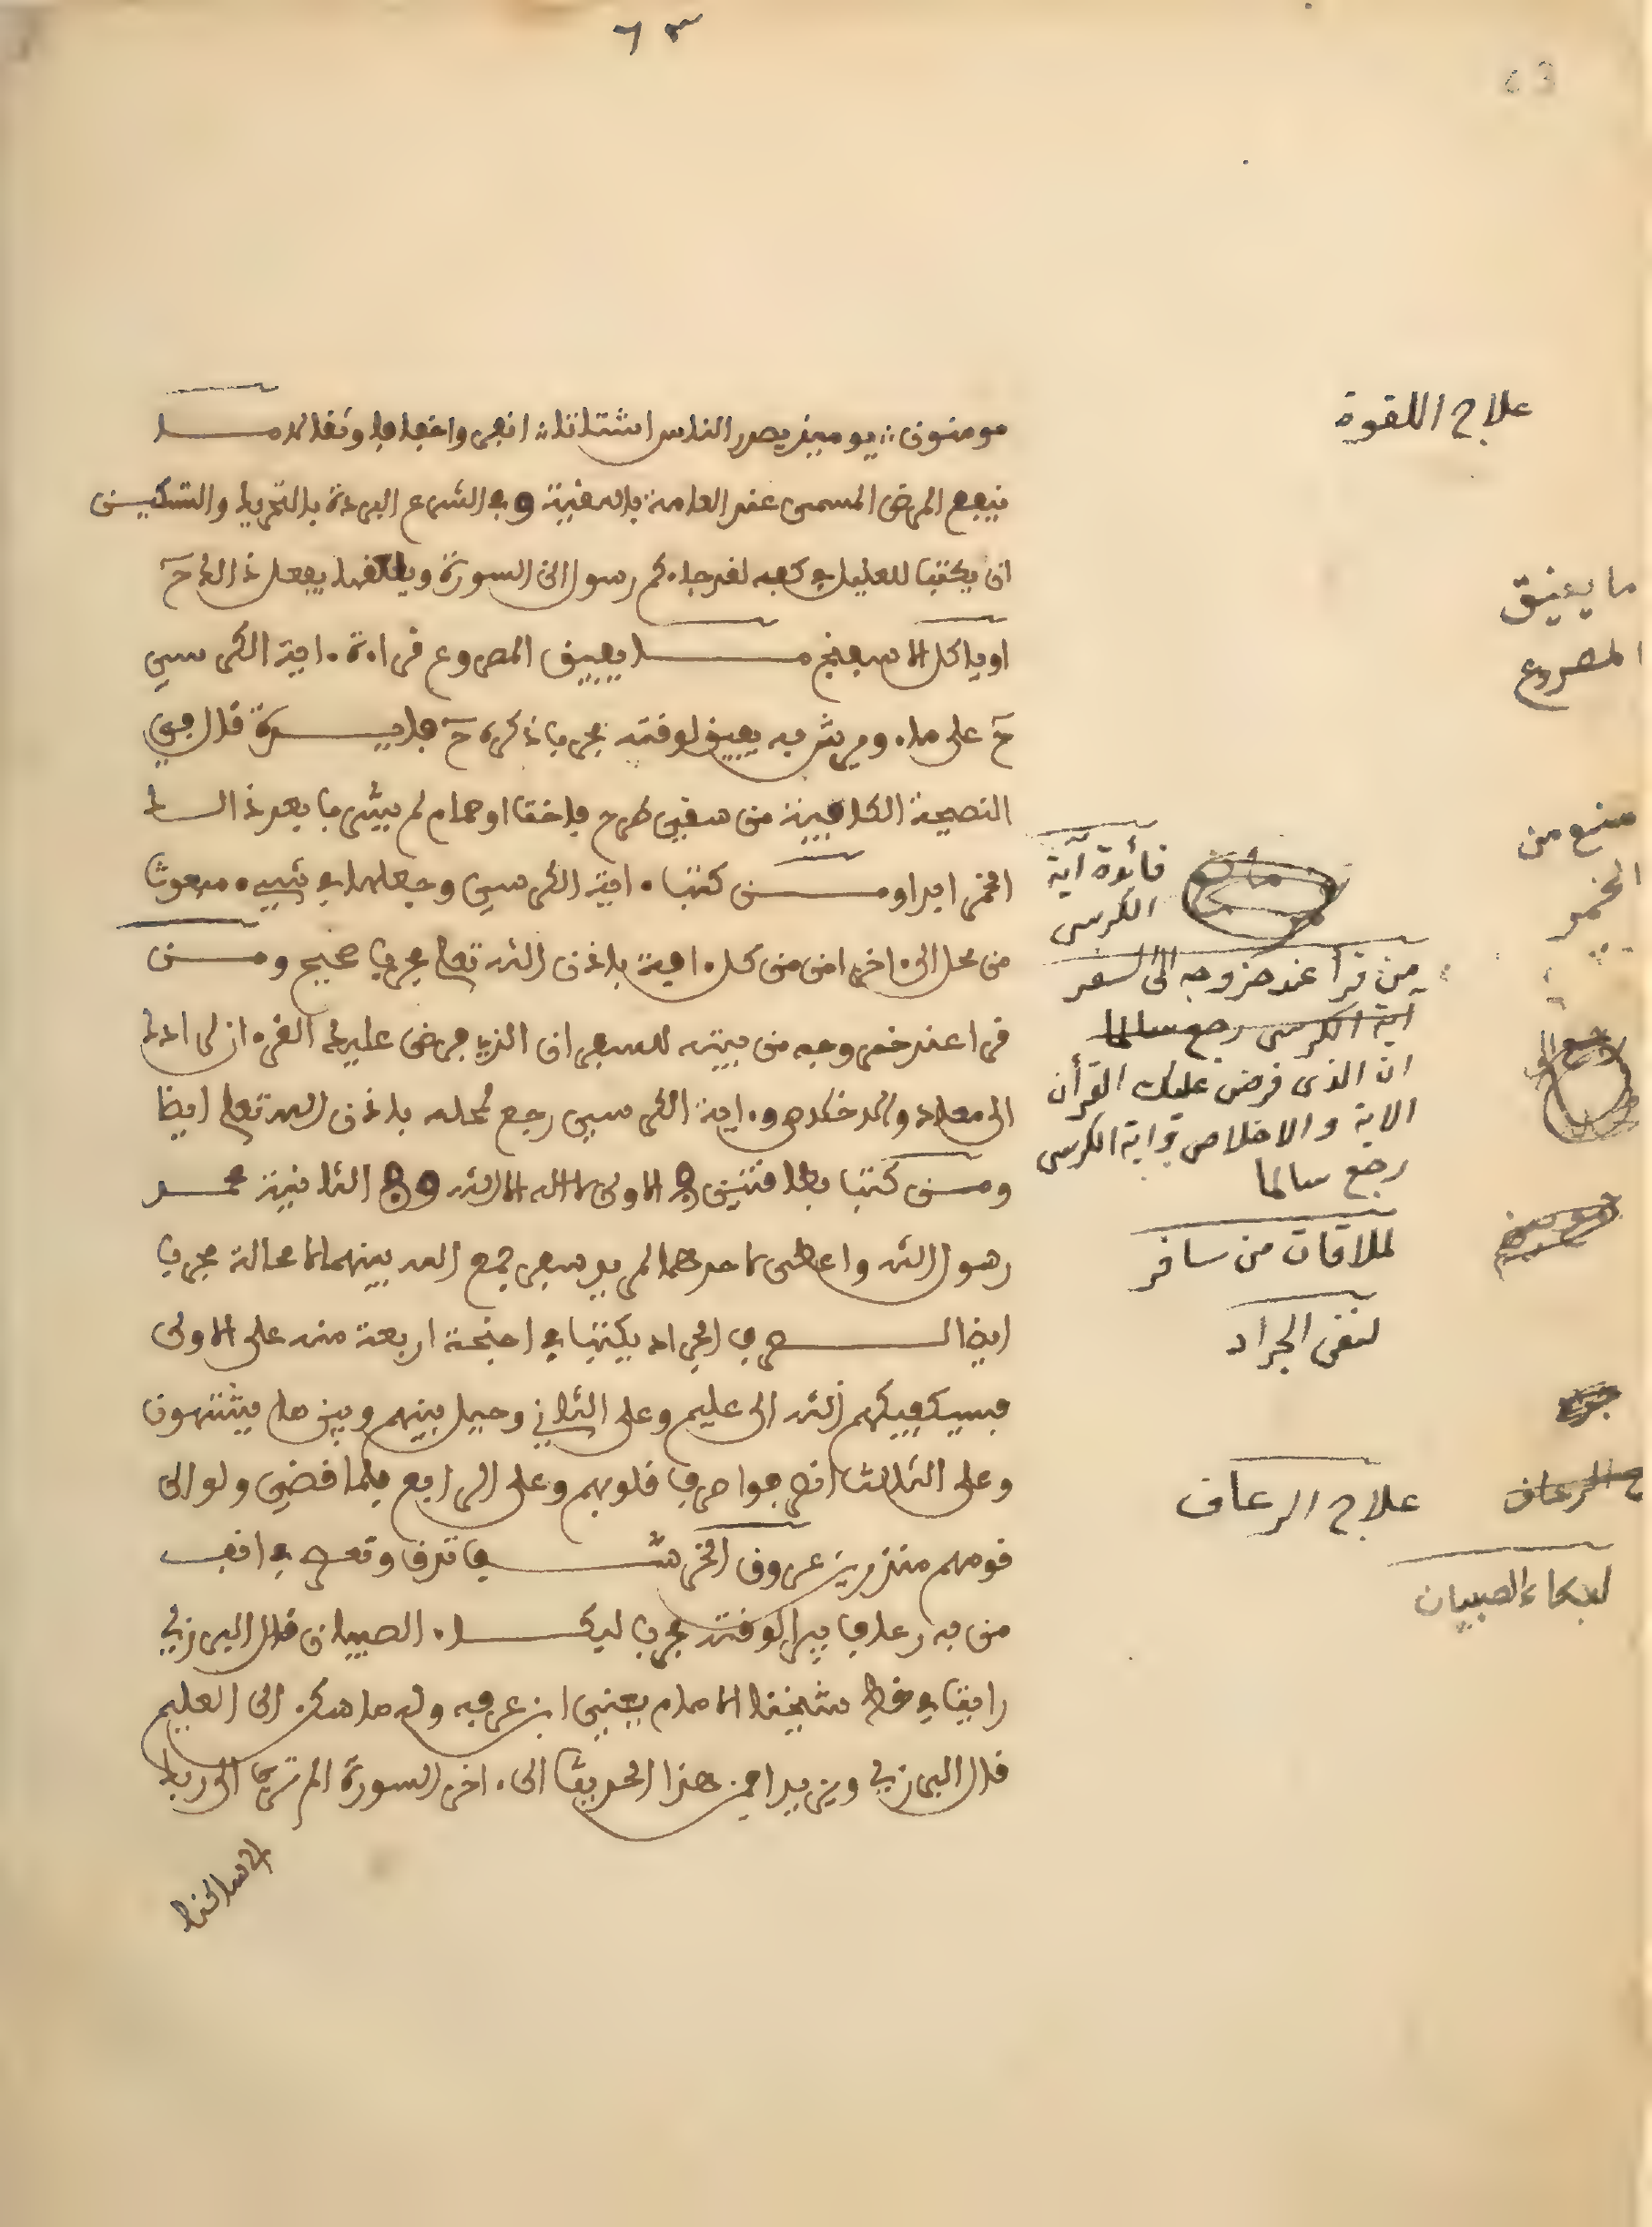 ٦٣
63
مومنون ∴ يومئذ يصدر الناس اشتاتا ∴ انفروا خفافا وثقالا مـــا
ينفع المرض المسمى عند العامة وفي الشرع البردة بالتحريك والتسكين
ان يكتب للعليل في كعبه لقد جاءكم رسول الى السورة يفعل ذالك حَ
او ياكل الاسفنج مـــا يفيق المصروع قراءة ءاية الكرسي
حَ على ماء ويرش به يفيق لوقته مجرب ذكره حَ فايـــدة قال في
النصيحة الكافية من سقي طرح او حمام لم يشرب بعد ذالك
الخمر ابدا ومـــن كتب ءاية الكرسي وجعلها في شيء مبعوث
من محل الى ءاخر امن من كل ءافة باذن الله تعلى مجرب صحيح ومـــن
قرا عند خروجه من بيته للسفر ان الذي فرض عليك القرءان لرادك
الى معاد والاخلاص وءاية الكرسي رجع لمحله باذن الله تعلى ايضا
ومـــن كتب بطاقتين في الاولى لا اله الا الله وفي الثانية محمـــد
رسول الله واعطى احدهما لمريد سفر جمع الله بينهما لا محالة مجرب
ايضا لـــصرف الجراد يكتب في اجنحة اربعة منه على الاولى
فسيكفيكهم الله الى عليم وعلى الثاني وحيل بينهم وبين ما يشتهون
وعلى الثالث انصرفوا صرف قلوبهم وعلى الرابع فلما قضي ولوا الى
قومهم منذرين عروق تدق في انف
من به رعاف يبرا لوقته مجرب لبكـــاء الصبيان قال البرزلي
رايت في خط شيخنا الامام يعني ابن عرفة وله ما سكن الى العليم
قال البرزلي ويزيد افمن هذا الحديث الى ءاخر السورة الم تر الى ربك
الاسالخنا
علاج اللقوة
ما يفيق
المصروع
منع من
الخمر
فائدة آية
الكرسي
من قرأ عند خروجه الى السفر
آية الكرسي رجع سالما
ان الذى فرض عليك القرأن
الاية والاخلاص واية الكرسى
رجع سالما
لملاقات من سافر
لنفى الجراد
علاج الرعاف
ج الرعاف
لبكاء الصبيان